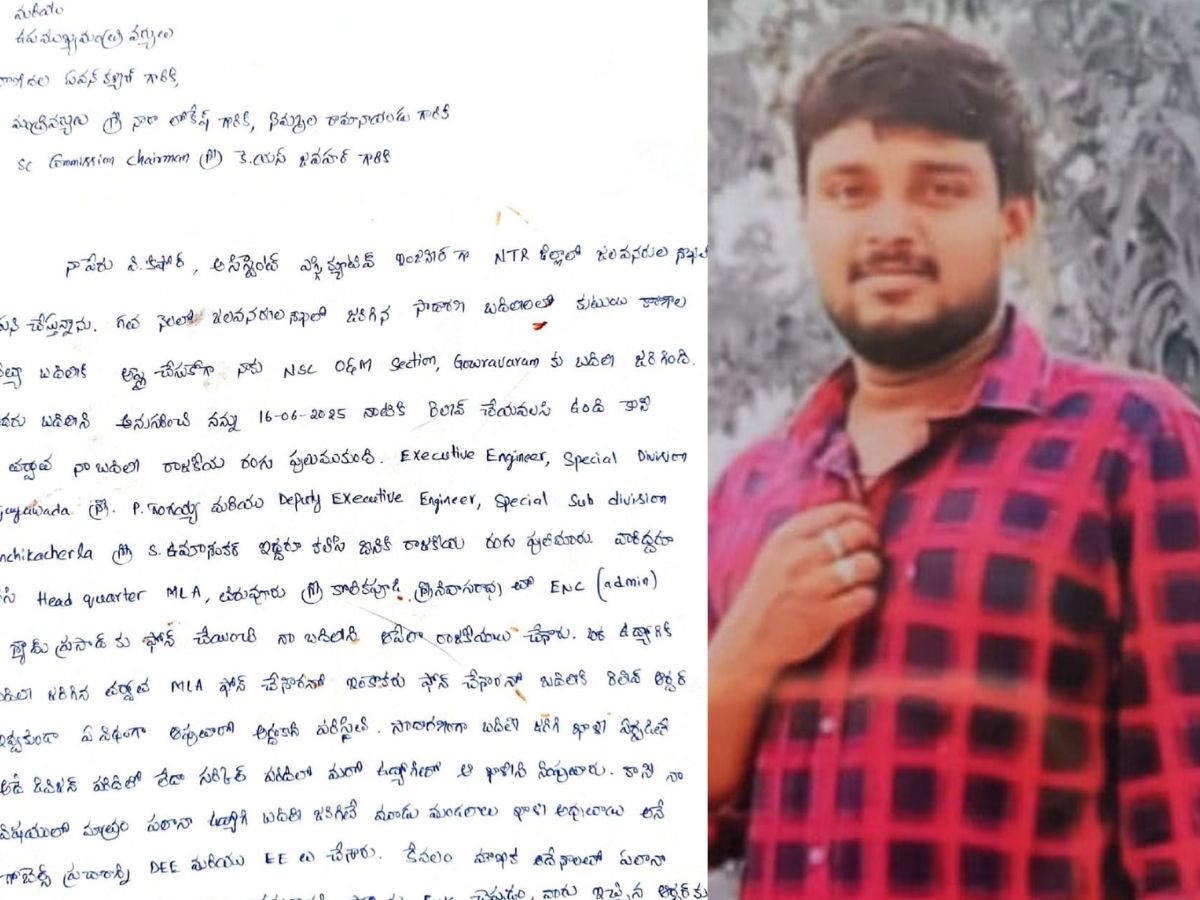 మరియు
ఉపముఖ్యమంత్రి వర్యులు
పవన్ కళ్యాణ్ గారికి,
మంత్రివర్యులు శ్రీ నారా లోకేష్ గారికి, నిమ్మల రామానాయుడు గారికి
SC Commission Chairman శ్రీ కె.యస్ జవహర్ గారికి
నా పేరు వి. కిషోర్, అసిస్టెంట్ ఎక్సిక్యూటివ్ ఇంజినీర్ గా NTR జిల్లాలో జలవనరుల శాఖలో
పని చేస్తున్నాను. గత నెలలో జలవనరులశాఖలో జరిగిన సాధారణ బదిలీలలో కుటుంబ కారణాల
బదిలీకి అప్లై చేసుకోగా నాకు NSC O&M Section, Gowravaram కు బదిలీ జరిగింది.
బదిలీని అనుసరించి నన్ను 16-06-2025 నాటికి రిలీవ్ చేయవలసి ఉంది కానీ
తర్వాత నా బదిలీ రాజకీయ రంగు పులిముకుంది. Executive Engineer, Special Division
శ్రీ. P. గంగయ్య మరియు Deputy Executive Engineer, Special Sub division
శ్రీ S. ఉమాశంకర్ ఇద్దరూ కలిసి దానికి రాజకీయ రంగు పులిమారు. వారిద్దరూ
Head quarter MLA, తిరువూరు శ్రీ కొలికపూడి శ్రీనివాసరావు తో ENC (admin)
ప్రసాద్ కు ఫోన్ చేయించి నా బదిలీని ఆపేలా రాజకీయాలు చేశారు. ఒక ఉద్యోగికి
బదిలీ జరిగిన తర్వాత MLA ఫోన్ చేసారనో ఇంకొకరు ఫోన్ చేసారనో బదిలీకి రిలీవ్ ఆర్డర్
ఇవ్వకుండా ఏ విధంగా ఆపుతారో అర్థంకాని పరిస్థితి. సాధారణంగా బదిలీ జరిగి ఖాళీ ఏర్పడితే
అదే డివిజన్ పరిధిలో లేదా సర్కిల్ పరిధిలో మరో ఉద్యోగితో ఆ ఖాళీని నింపుతారు. కానీ నా
విషయంలో మాత్రం ఫలానా ఉద్యోగి బదిలీ జరిగితే మూడు మండలాలు ఖాళీ అవుతాయి అనే
గోబెల్స్ ప్రచారాన్ని DEE మరియు EE లు చేసారు. కేవలం మౌఖిక ఆదేశాలతో ఫలానా
చెప్పడం, వారు ఇచ్చిన ఆర్డర్ కు